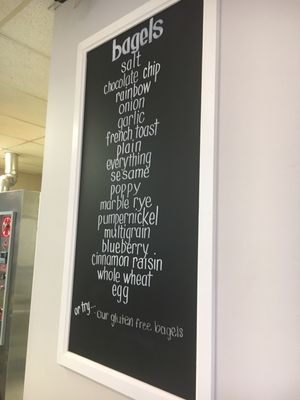 bagels
salt
chocolate chip
rainbow
onion
garlic
french toast
plain
everything
sesame
poppy
marble rye
pumpernickel
multigrain
blueberry
cinnamon raisin
whole wheat
egg
or try... our gluten free bagels